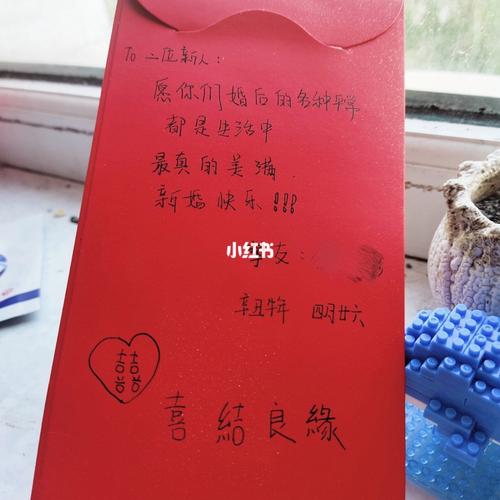 To 二位新人:
愿你们婚后的各种平常
都是生活中
最真的美满.
新婚快乐!!!
小红书
学友:
辛丑牛年 四月廿六
囍
喜結良緣